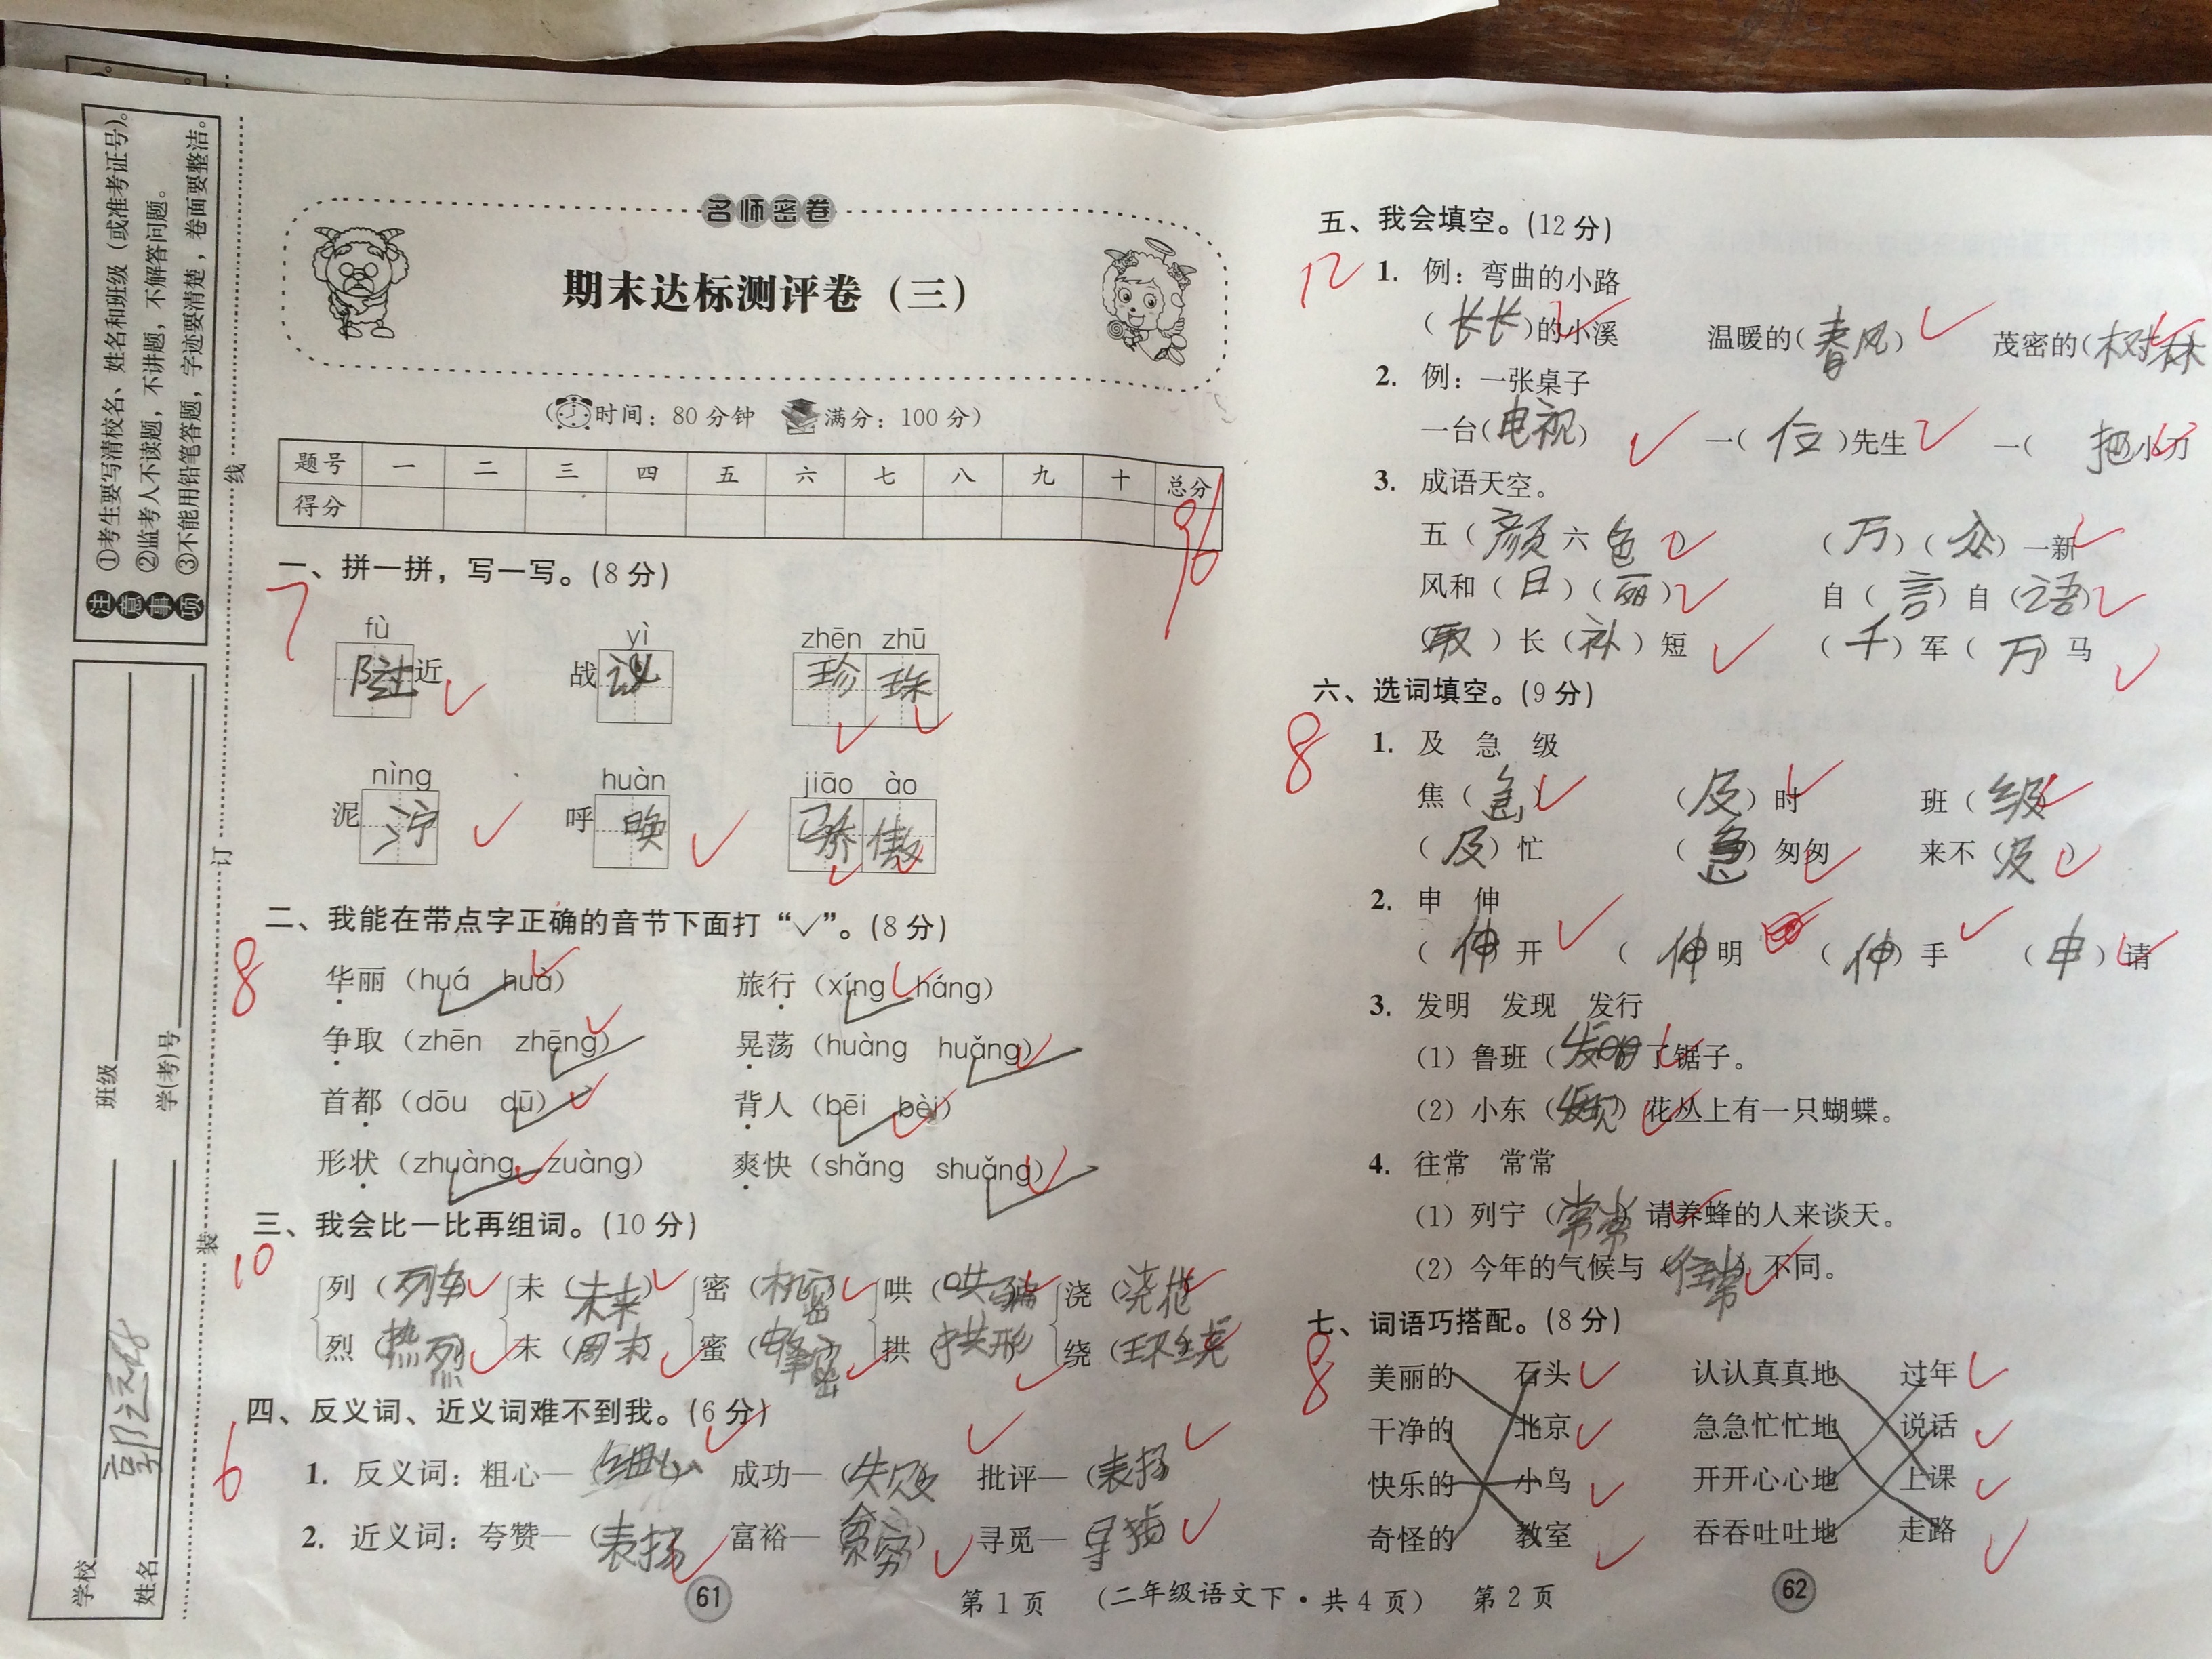 注意事项
①考生要写清校名、姓名和班级（或准考证号）。
②监考人不读题，不讲题，不解答问题。
③不能用铅笔答题，字迹要清楚，卷面要整洁。
学校
班级
姓名
学(考)号
装
订
线
名师密卷
期末达标测评卷（三）
（时间：80分钟 满分：100分）
题号 一 二 三 四 五 六 七 八 九 十 总分
得分
96
一、拼一拼，写一写。(8分)
7
fù yì zhēn zhū
附近 战 珍珠
nìng huàn jiāo ào
泥泞 呼唤 骄傲
二、我能在带点字正确的音节下面打“✓”。(8分)
8
华丽（huá huà） 旅行（xíng háng）
争取（zhēn zhēng） 晃荡（huàng huǎng）
首都（dōu dū） 背人（bēi bèi）
形状（zhuàng zuàng） 爽快（shǎng shuǎng）
三、我会比一比再组词。(10分)
10
列（列车） 未（未来） 密（机密） 哄（哄骗） 浇（浇花）
烈（热烈） 末（周末） 蜜（蜂蜜） 拱（拱形） 绕（环绕）
四、反义词、近义词难不到我。(6分)
6
1. 反义词：粗心—（细心） 成功—（失败） 批评—（表扬）
2. 近义词：夸赞—（表扬） 富裕—（ ） 寻觅—
61
第1页 （二年级语文下·共4页） 第2页
五、我会填空。(12分)
12
1. 例：弯曲的小路
（长长）的小溪 温暖的（春风） 茂密的（树林
2. 例：一张桌子
一台（电视） 一（位）先生 一（把小刀
3. 成语天空。
五（颜六色） （万）（众）一新
风和（日）（丽） 自（言）自（语）
（取）长（补）短 （千）军（万）马
六、选词填空。(9分)
8
1. 及 急 级
焦（急） （及）时 班（级
（及）忙 （急）匆匆 来不（及）
2. 申 伸
（伸）开 （伸明 （伸）手 （申）请
3. 发明 发现 发行
(1) 鲁班（发明了锯子。
(2) 小东（发现）花丛上有一只蝴蝶。
4. 往常 常常
(1) 列宁（常常）请养蜂的人来谈天。
(2) 今年的气候与（往常）不同。
七、词语巧搭配。(8分)
8
美丽的 石头 认认真真地 过年
干净的 北京 急急忙忙地 说话
快乐的 小鸟 开开心心地 上课
奇怪的 教室 吞吞吐吐地 走路
62